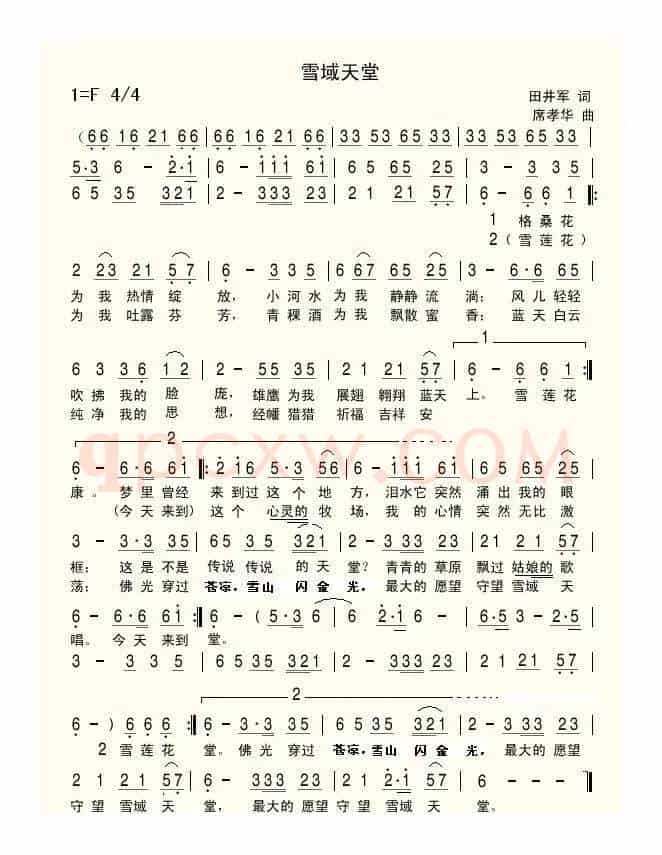 雪域天堂
1=F 4/4
田井军 词
席孝华 曲
(66 16 21 66 | 66 16 21 66 | 33 53 65 33 | 33 53 65 33 |
5·3 6 - 2·1 | 6 - 111 61 | 2·1 23 53 | 3 - 3 35 |
6 5 35 321 | 2 - 333 23 | 2 1 21 57 | 6 - 6 6 1 :
1 格桑花
2(雪莲花)
2 23 21 57 | 6 - 35 35 | 6 67 65 25 | 3 - 6·6 65 |
为我 热情 绽 放, 小河水为我 静静流 淌; 风儿轻轻
为我 吐露 芬 芳, 青稞酒为我 飘散蜜 香; 蓝天白云
1
6 3 36 12 | 6 - 55 35 | 2 1 21 57 | 6 - 6 6 1 :
吹拂我的 脸 庞, 雄鹰为我 展翅翱翔蓝天 上。 雪莲花
纯净我的 思 想, 经幡猎猎 祈福吉祥安
2
康。 梦里曾经 来到过这个地 方, 泪水它突然 涌出我的眼
(今天来到) 这个 心灵的牧 场, 我的心情 突然无比激
3 - 3·3 35 | 65 35 321 | 2 - 333 23 | 2 1 21 57 |
框; 这是不是 传说传说 的天 堂? 青青的草原 飘过姑娘的歌
荡; 佛光穿过 苍凉,雪山 闪金 光, 最大的愿望 守望雪域 天
唱。 今天来到 堂。
2
2 雪莲花 堂。佛光 穿过 苍凉,雪山 闪金 光, 最大的愿望
2 1 21 57 | 6 - 333 23 | 2 1 2·1 57 | 6 - - - |
守望 雪域 天 堂, 最大的愿望守望 雪域 天 堂。
qpcxw.COM